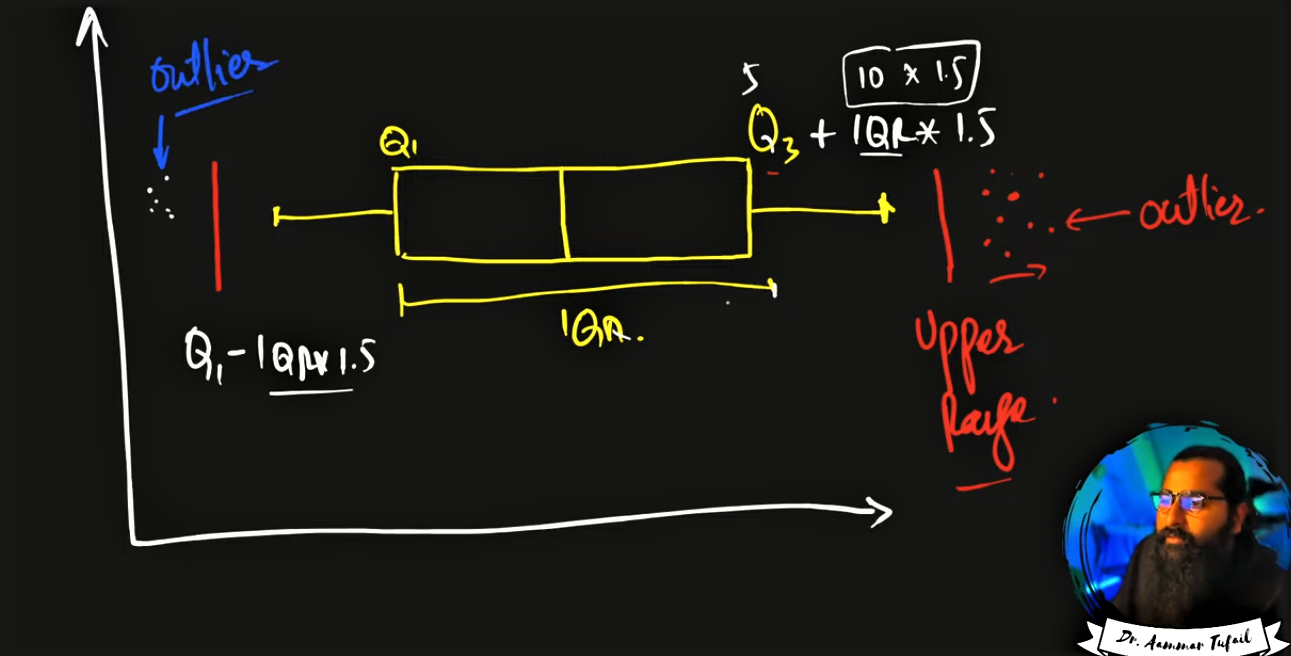 outlier
5
10 * 1.5
Q1
Q3 + IQR * 1.5
outlier.
IQR.
Q1 - IQR * 1.5
Upper
Range
Dr. Aammar Tufail